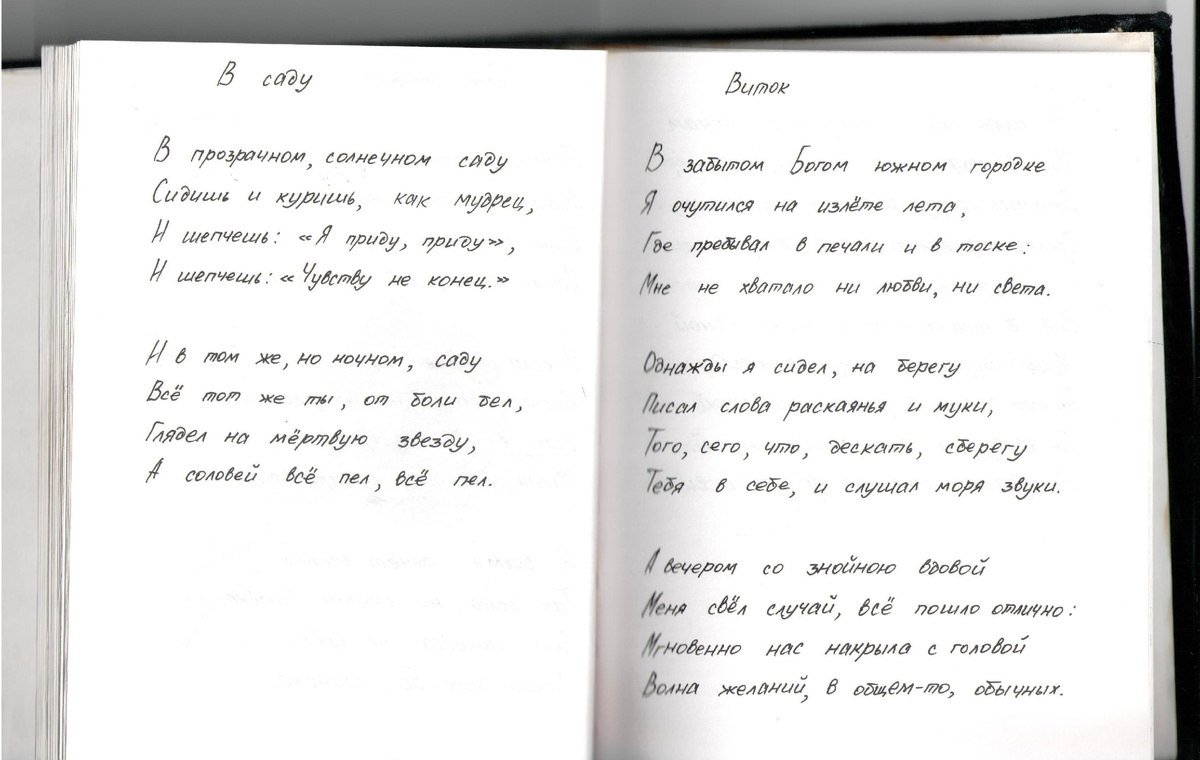 В саду
В прозрачном, солнечном саду
Сидишь и куришь, как мудрец,
И шепчешь: «Я приду, приду»,
И шепчешь: «Чувству не конец.»
И в том же, но ночном, саду
Всё тот же ты, от боли бел,
Глядел на мёртвую звезду,
А соловей всё пел, всё пел.
Виток
В забытом Богом южном городке
Я очутился на излёте лета,
Где пребывал в печали и в тоске:
Мне не хватало ни любви, ни света.
Однажды я сидел, на берегу
Писал слова раскаянья и муки,
Того, сего, что, дескать, сберегу
Тебя в себе, и слушал моря звуки.
А вечером со знойною вдовой
Меня свёл случай, всё пошло отлично:
Мгновенно нас накрыла с головой
Волна желаний, в общем-то, обычных.